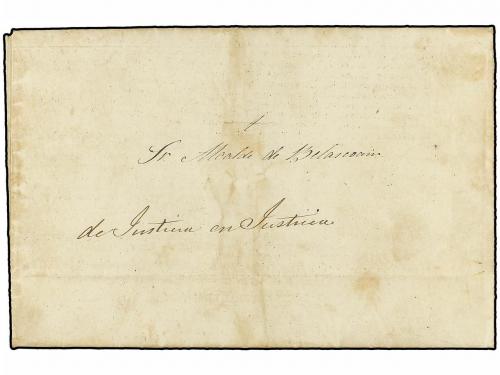 +
Sr Alcalde de Belascoain
de Justicia en Justicia